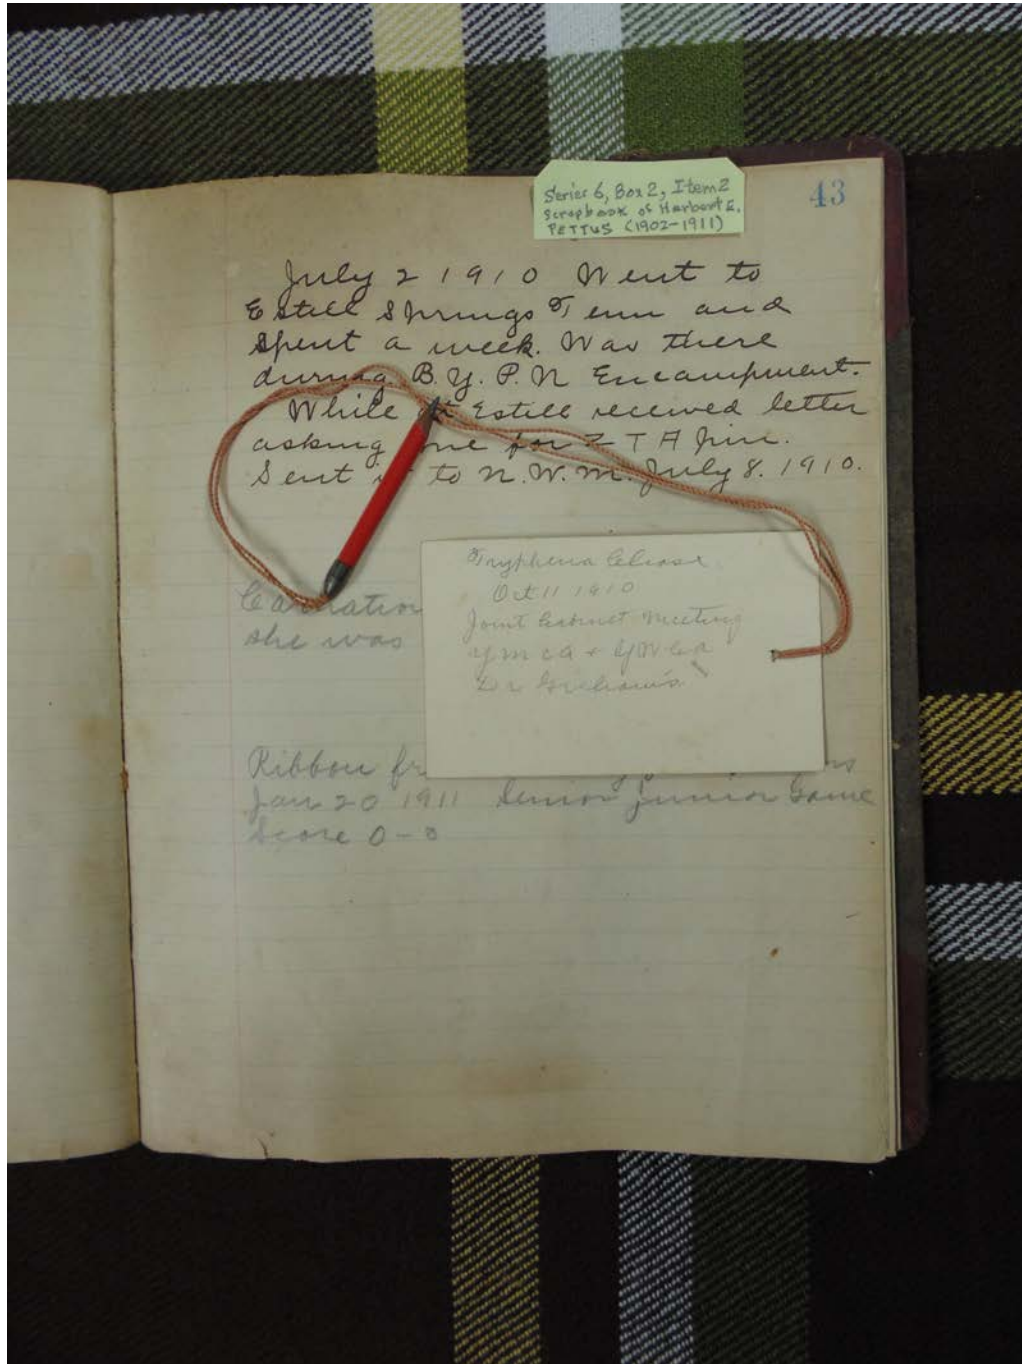 Series 6, Box 2, Item 2
Scrapbook of Herbert E.
PETTUS (1902-1911)
43
July 2 1910 Went to
Estill Springs Tenn and
spent a week. Was there
during B. Y. P. N Encampment.
While at Estill received letter
asking me for Z T A Pin.
Sent it to N. W. M. July 8. 1910.
Tryphena
Oct 11 1910
Joint Cabinet Meeting
YMCA + YWCA
Dr
Carnation
she was
Ribbon
Jan 20 1911 Senior Junior Game
Score 0-0